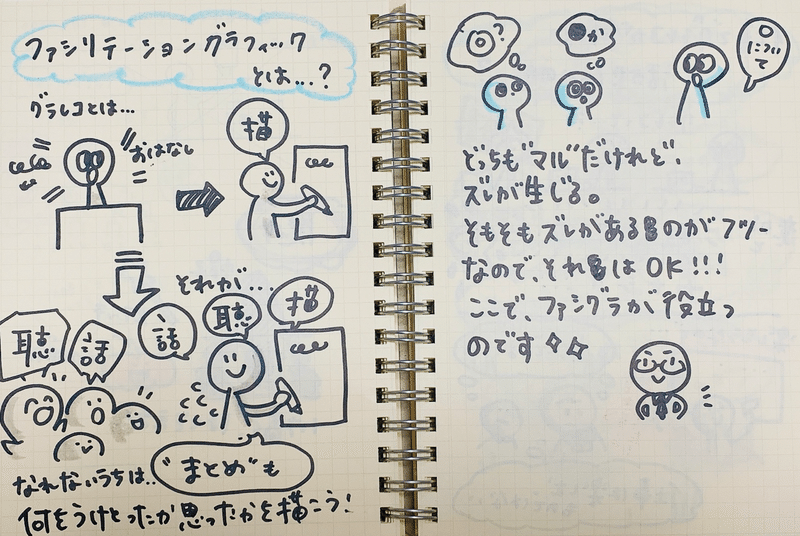 ファシリテーショングラフィック
とは...?
グラレコとは...
おはなし
描
それが....
聴
話
話
聴
描
なれないうちは.. "まとめ"も
何をうけとったか思ったかを描こう!
?
か
〇
について
どっちも"マル"だけれど、
ズレが生じる。
そもそもズレがあるのがフツー
なので、それはOK!!!
ここで、ファシグラが役立つ
のです